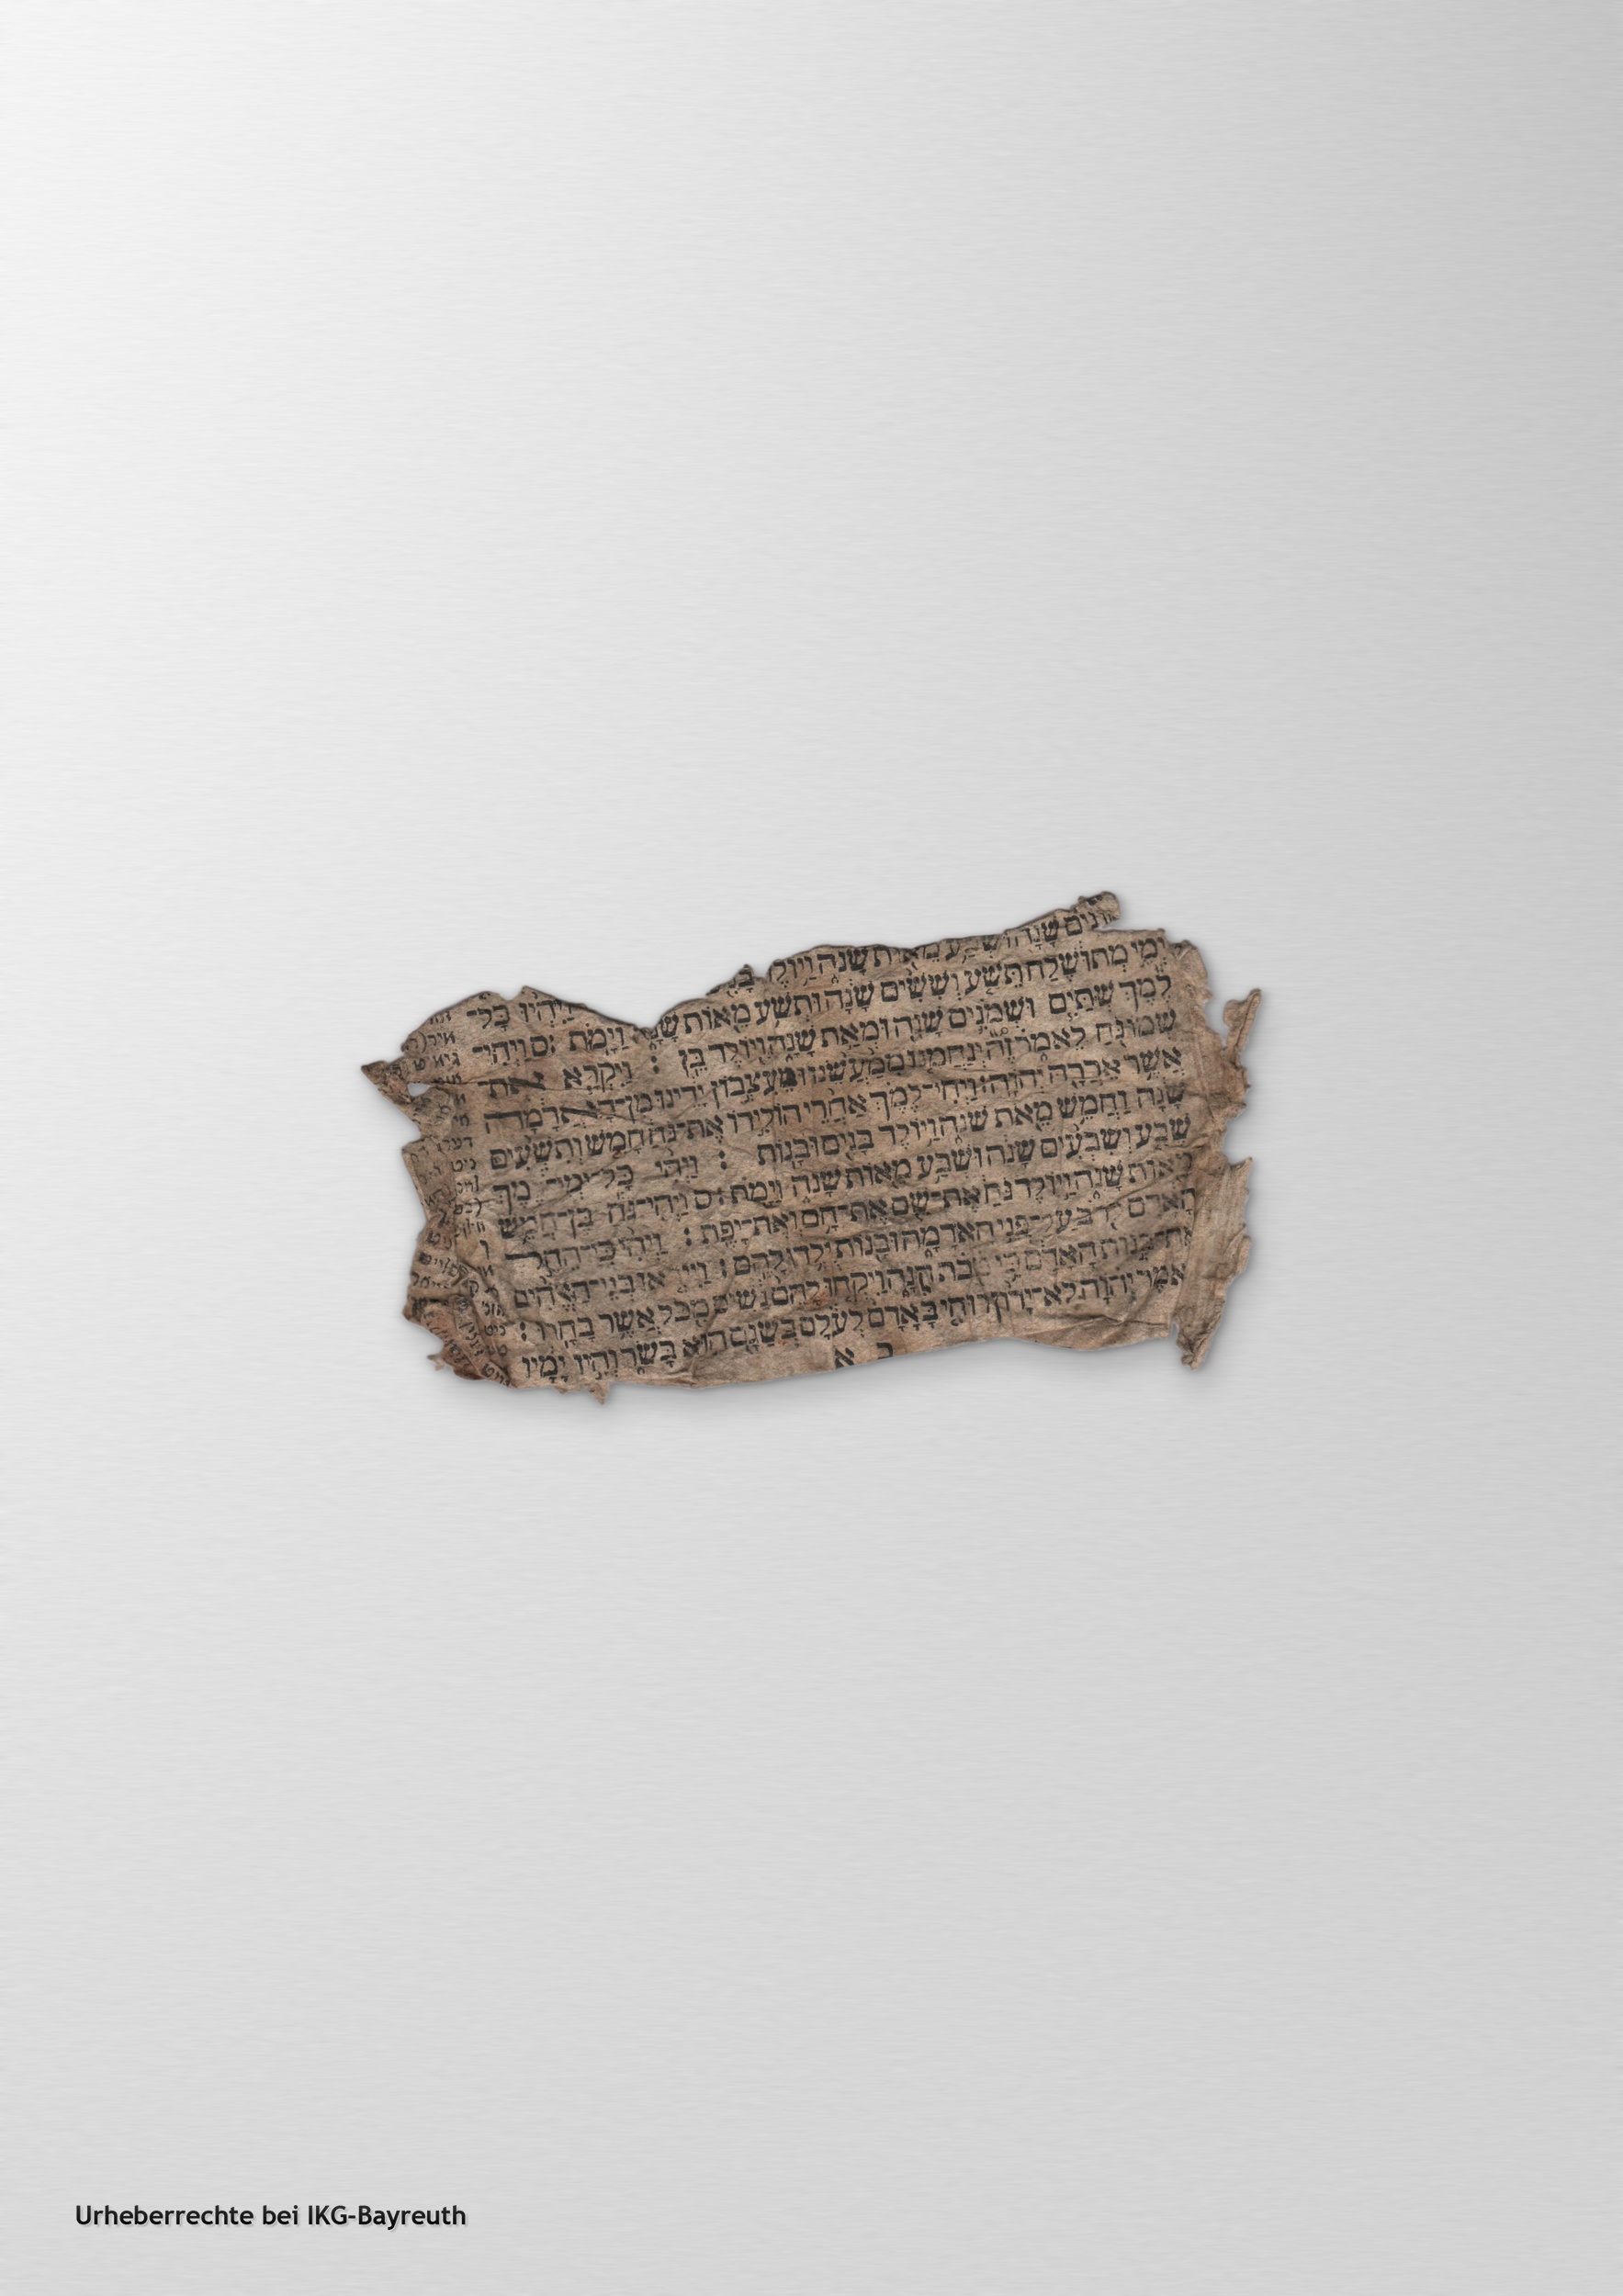 שָׁנָה וּשְׁבַע מֵאוֹת שָׁנָה וַיּוֹלֶד וַיִּהְיוּ כָּל־
יְמֵי מְתוּשֶׁלַח תֵּשַׁע וְשִׁשִּׁים שָׁנָה וּתְשַׁע מֵאוֹת שָׁנָה וַיָּמֹת : ס וַיְחִי־
לֶמֶךְ שְׁתַּיִם וּשְׁמֹנִים שָׁנָה וּמְאַת שָׁנָה וַיּוֹלֶד בֵּן : וַיִּקְרָא אֶת־
שְׁמוֹ נֹחַ לֵאמֹר זֶה יְנַחֲמֵנוּ מִמַּעֲשֵׂנוּ וּמֵעִצְּבוֹן יָדֵינוּ מִן־הָאֲדָמָה
אֲשֶׁר אֵרְרָהּ יְהוָה : וַיְחִי־לֶמֶךְ אַחֲרֵי הוֹלִידוֹ אֶת־נֹחַ חָמֵשׁ וְתִשְׁעִים
שָׁנָה וַחֲמֵשׁ מֵאֹת שָׁנָה וַיּוֹלֶד בָּנִים וּבָנוֹת : וַיְהִי כָּל־יְמֵי־
שֶׁבַע וְשִׁבְעִים שָׁנָה וּשְׁבַע מֵאוֹת שָׁנָה וַיָּמֹת : ס וַיְהִי־נֹחַ בֶּן־חֲמֵשׁ
מֵאוֹת שָׁנָה וַיּוֹלֶד נֹחַ אֶת־שֵׁם אֶת־חָם וְאֶת־יָפֶת : וַיְהִי כִּי־הֵחֵל
הָאָדָם לָרֹב עַל־פְּנֵי הָאֲדָמָה וּבָנוֹת יֻלְּדוּ לָהֶם : וַיִּרְאוּ בְנֵי־הָאֱלֹהִים
אֶת־בְּנוֹת הָאָדָם כִּי טֹבֹת הֵנָּה וַיִּקְחוּ לָהֶם נָשִׁים מִכֹּל אֲשֶׁר בָּחָרוּ :
אמֶר יְהוָה לֹא־יָדוֹן רוּחִי בָאָדָם לְעֹלָם בְּשַׁגַּם הוּא בָשָׂר וְהָיוּ יָמָיו
Urheberrechte bei IKG-Bayreuth